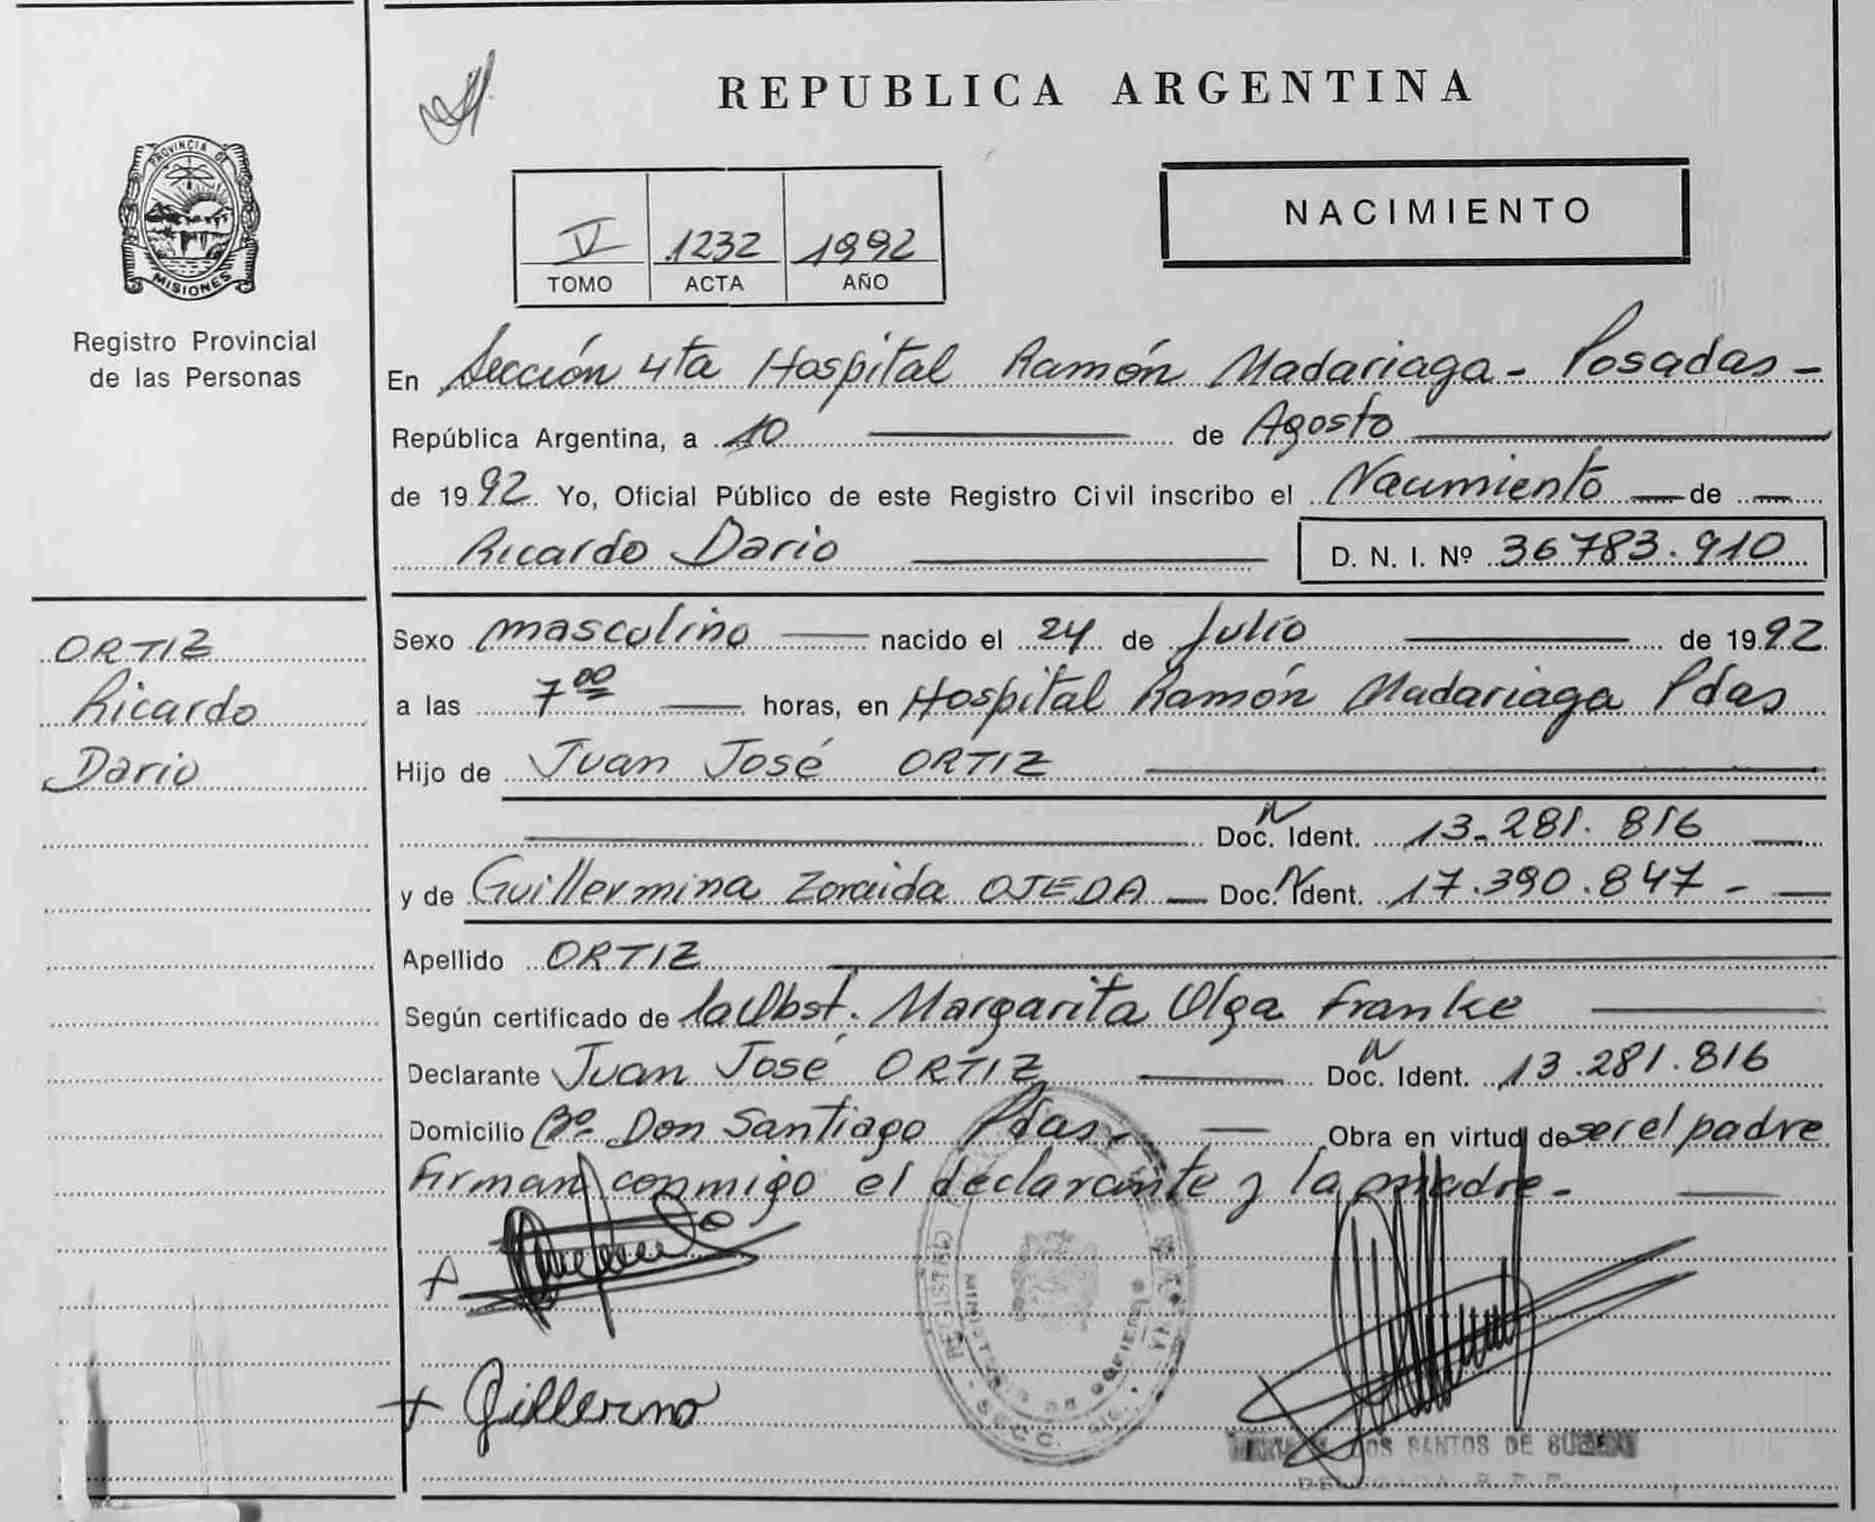 REPUBLICA ARGENTINA
PROVINCIA DE
MISIONES
Registro Provincial
de las Personas
NACIMIENTO
V 1232 1992
TOMO ACTA AÑO
En Sección 4ta Hospital Ramón Madariaga - Posadas -
República Argentina, a 10 de Agosto
de 1992. Yo, Oficial Público de este Registro Civil inscribo el Nacimiento de
Ricardo Dario D. N. I. Nº 36783.910
ORTIZ
Ricardo
Dario
Sexo masculino nacido el 24 de Julio de 1992
a las 7 00 horas, en Hospital Ramón Madariaga Pdas
Hijo de Juan José ORTIZ
Doc. N Ident. 13.281.816
y de Guillermina Zoraida OJEDA Doc. N Ident. 17.390.847 -
Apellido ORTIZ
Según certificado de la Obst. Margarita Olga Franke
Declarante Juan José ORTIZ Doc. N Ident. 13.281.816
Domicilio Bº Don Santiago Pdas. Obra en virtud de ser el padre
Firman conmigo el declarante y la madre -
REGISTRO
MINISTERIO DE GOBIERNO
+ Gillermo
DOS SANTOS DE